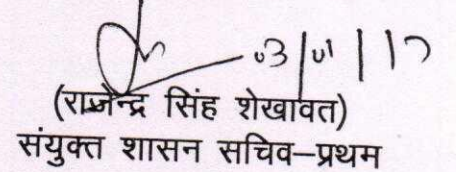 03/01/17
(राजेन्द्र सिंह शेखावत)
संयुक्त शासन सचिव–प्रथम